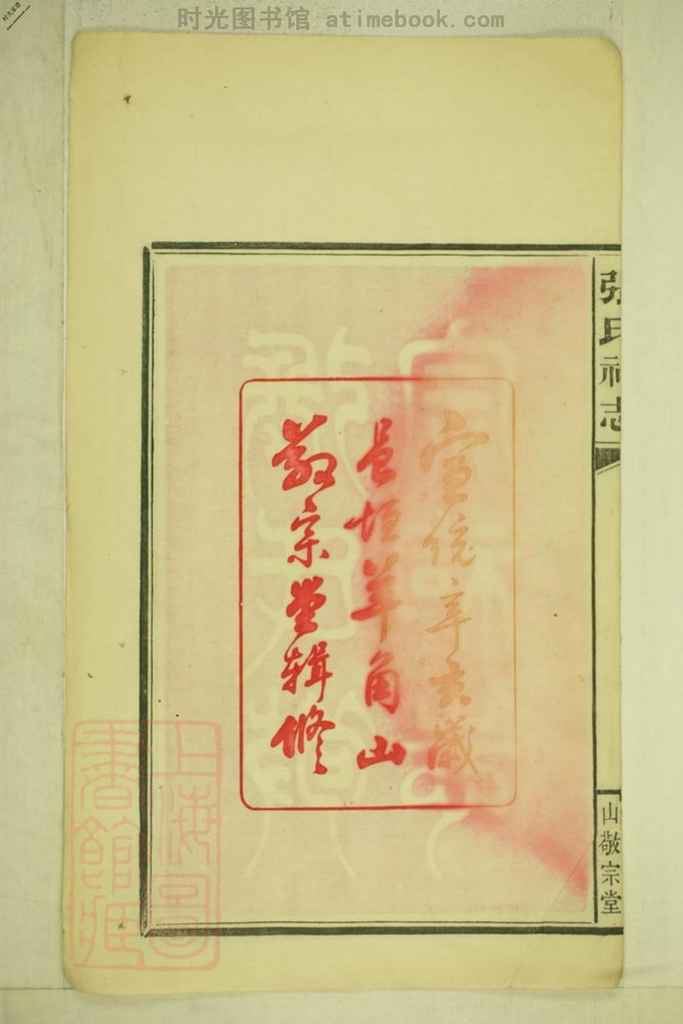 时光图书馆 atimebook.com
宣統辛亥歲
邑垣羊角山
敬宗堂輯修
張氏祠志
山敬宗堂
上海圖
書館藏